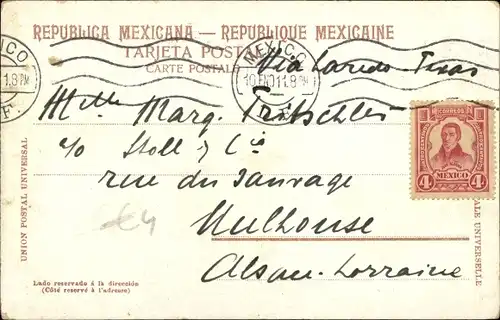 REPUBLICA MEXICANA — REPUBLIQUE MEXICAINE
TARJETA POSTAL
CARTE POSTALE
MEXICO
10 ENO 11. 8 PM
Via Laredo-Texas
Mlle Marg. Fritschler
c/o Stoll & Cie
rue du Sauvage
Mulhouse
Alsace-Lorraine
CORREOS
MEXICO
4 4
UNION POSTAL UNIVERSAL
ALE UNIVERSELLE
€4
Lado reservado á la dirección
(Côté reservé à l'adresse)